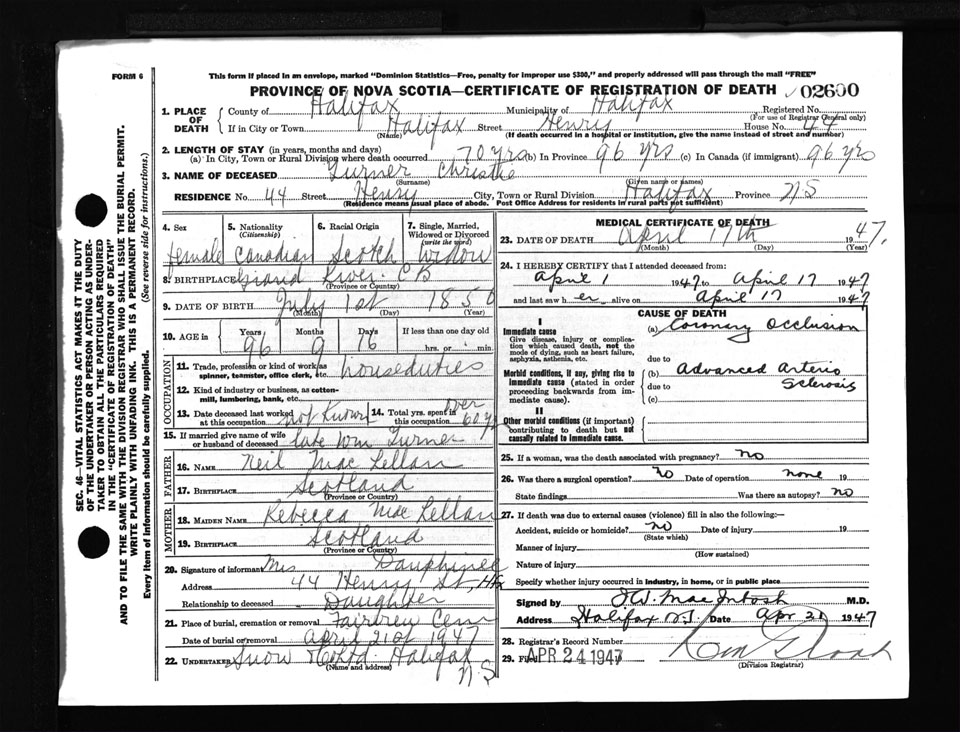 FORM 6
This form if placed in an envelope, marked "Dominion Statistics—Free, penalty for improper use $300," and properly addressed will pass through the mail "FREE"
PROVINCE OF NOVA SCOTIA—CERTIFICATE OF REGISTRATION OF DEATH 02600
1. PLACE OF DEATH
County of Halifax Municipality of Halifax Registered No.
(For use of Registrar General only)
If in City or Town Halifax Street Henry House No. 44
(Name) (If death occurred in a hospital or institution, give the name instead of street and number)
2. LENGTH OF STAY (in years, months and days)
(a) In City, Town or Rural Division where death occurred 70 yrs (b) In Province 96 yrs (c) In Canada (if immigrant) 96 yrs
3. NAME OF DECEASED Turner Christie
(Surname) (Given name or names)
RESIDENCE No. 44 Street Henry City, Town or Rural Division Halifax Province N S
(Residence means usual place of abode. Post Office Address for residents in rural parts not sufficient)
4. Sex 5. Nationality (Citizenship) 6. Racial Origin 7. Single, Married, Widowed or Divorced (write the word)
female Canadian Scotch Widow
8. BIRTHPLACE Grand River C B
(Province or Country)
9. DATE OF BIRTH July 1st 1850
(Month) (Day) (Year)
10. AGE in Years Months Days If less than one day old
96 9 16 hrs. or min.
OCCUPATION
11. Trade, profession or kind of work as spinner, teamster, office clerk, etc. houseduties
12. Kind of industry or business, as cotton-mill, lumbering, bank, etc.
13. Date deceased last worked at this occupation not known 14. Total yrs. spent in this occupation over 60 yrs
15. If married give name of wife or husband of deceased late Wm Turner
FATHER
16. NAME Neil Mac Lellan
17. BIRTHPLACE Scotland
(Province or Country)
MOTHER
18. MAIDEN NAME Rebecca Mac Lellan
19. BIRTHPLACE Scotland
(Province or Country)
20. Signature of informant Mrs Dauphinee
Address 44 Henry St, Hfx
Relationship to deceased Daughter
21. Place of burial, cremation or removal Fairview Cem
Date of burial or removal April 21st 1947
22. UNDERTAKER Snow & Co Ltd. Halifax
(Name and address) N. S
MEDICAL CERTIFICATE OF DEATH
23. DATE OF DEATH April 17th 1947.
(Month) (Day) (Year)
24. I HEREBY CERTIFY that I attended deceased from:
April 1 1947 to April 17 1947
and last saw h er alive on April 17 1947
CAUSE OF DEATH
I
Immediate cause
Give disease, injury or complication which caused death, not the mode of dying, such as heart failure, asphyxia, asthenia, etc.
(a) Coronary Occlusion
due to
Morbid conditions, if any, giving rise to immediate cause (stated in order proceeding backwards from immediate cause).
(b) Advanced Arterio
due to Sclerosis
(c)
II
Other morbid conditions (if important) contributing to death but not causally related to immediate cause.
25. If a woman, was the death associated with pregnancy? No
26. Was there a surgical operation? No Date of operation none 19
State findings Was there an autopsy? No
27. If death was due to external causes (violence) fill in also the following:—
Accident, suicide or homicide? No Date of injury 19
(State which)
Manner of injury
(How sustained)
Nature of injury
Specify whether injury occurred in industry, in home, or in public place
Signed by J W. Mac Intosh M.D.
Address Halifax N.S Date Apr 21 1947
28. Registrar's Record Number
29. Filed APR 24 1947
(Division Registrar)
SEC. 46—VITAL STATISTICS ACT MAKES IT THE DUTY
OF THE UNDERTAKER OR PERSON ACTING AS UNDER-
TAKER TO OBTAIN ALL THE PARTICULARS REQUIRED
IN THE "CERTIFICATE OF REGISTRATION OF DEATH"
AND TO FILE THE SAME WITH THE DIVISION REGISTRAR WHO SHALL ISSUE THE BURIAL PERMIT.
WRITE PLAINLY WITH UNFADING INK. THIS IS A PERMANENT RECORD.
Every item of information should be carefully supplied. (See reverse side for instructions.)